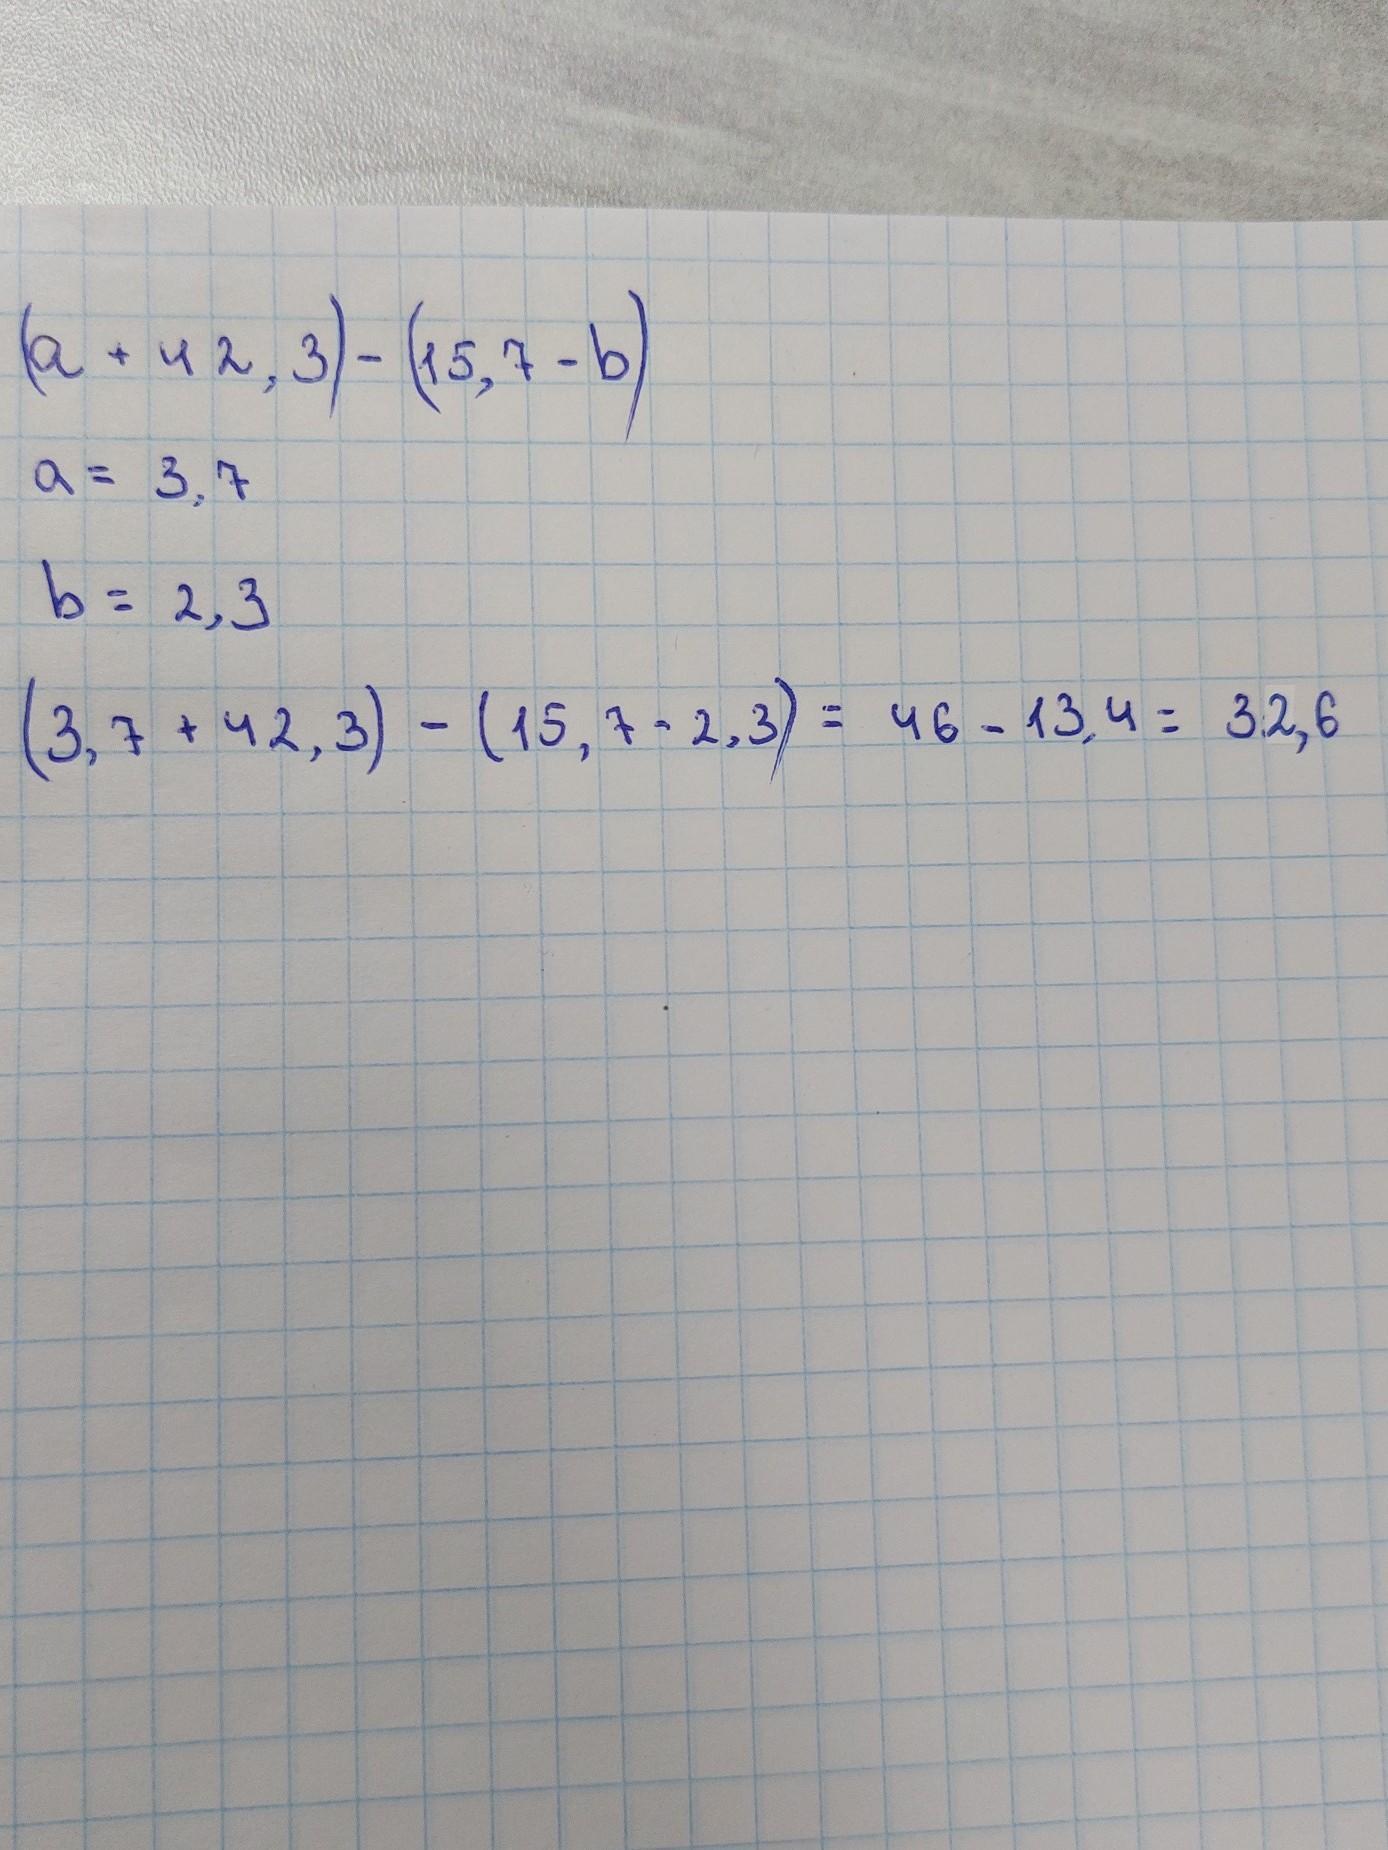 (a + 42,3) - (15,7 - b)
a = 3,7
b = 2,3
(3,7 + 42,3) - (15,7 - 2,3) = 46 - 13,4 = 32,6